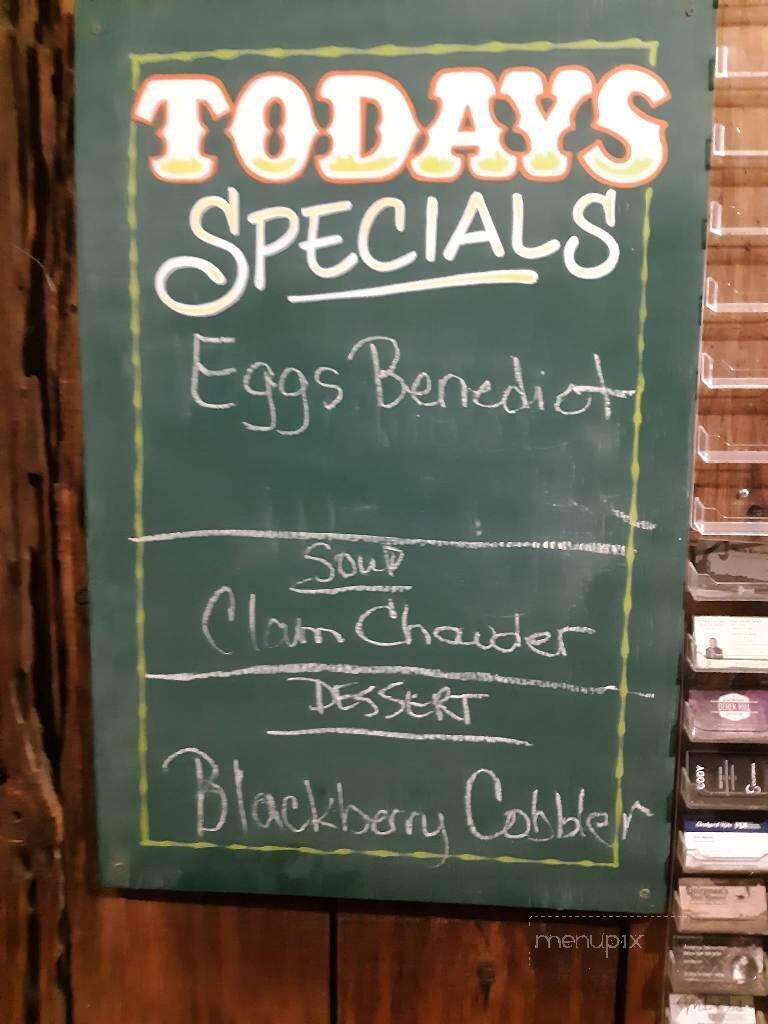 TODAYS
SPECIALS
Eggs Benedict
Soup
Clam Chowder
DESSERT
Blackberry Cobbler
menupix
CODY